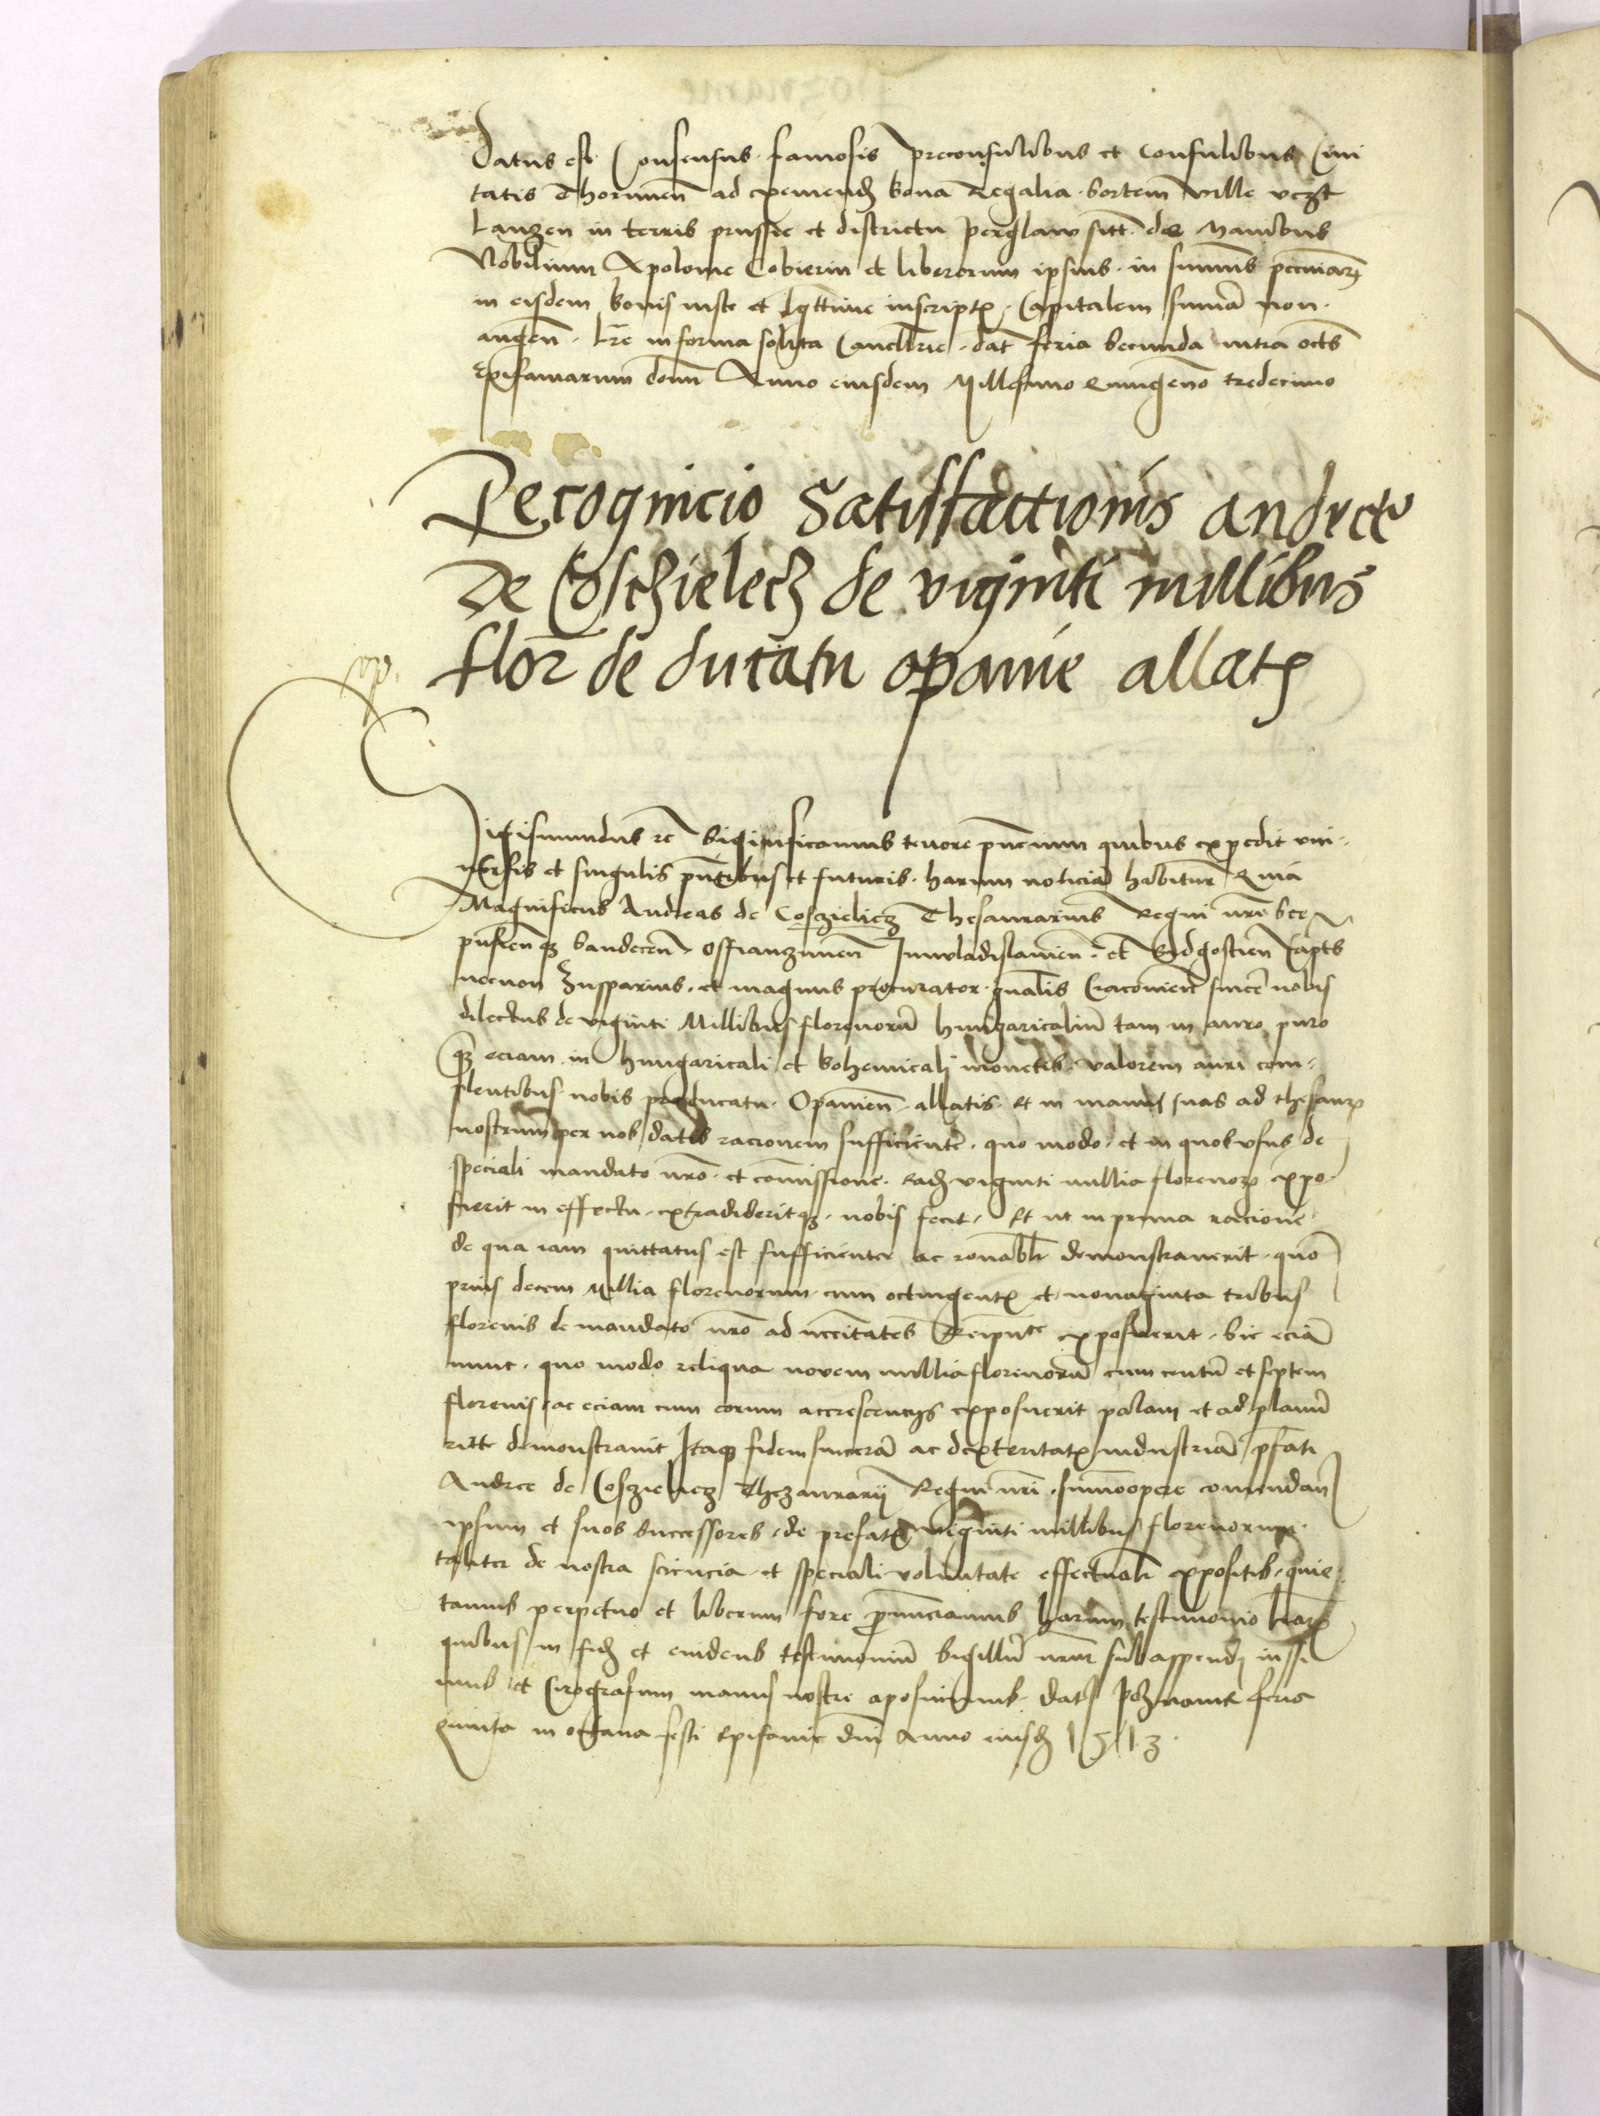 Datus est Consensus famosis preconsulibus et Consulibus Civi
tatis Thorunen̄ ad exemendū bona Regalia sortem ville
Langen in terris prussie et districtu sitt̄ de Manibus
Nobilium Apolonie et liberorum ipsius in summis pecuniarū
in eisdem bonis iuste et inscriptis Capitalem sum̄ā non
augen̄ lr̄e in forma solita Cancellarie dat̄ feria secunda intra oct̄s
Epifaniarum domī Anno eiusdem Millesimo Quingen̄o tredecimo
Recognicio Satisfactionis andree
De Coschielecz de viginti millibus
flor̄ de ducatu opavie allatis
Sigismundus rē Significamus tenore pn̄cium quibus expedit vni-
versis et singulis pn̄tibus et futuris harum noticiā habitur̄ Quia
Magnificus Andreas de Coszieliecz Thesaurarius Regni nrī Sce
pusien̄ qȝ Sandecen̄ Osswanczimen̄ Iunivladislavien̄ et Bidgostien̄ Capt̄s
necnon Zupparius et magnus procurator gn̄alis Cracovien̄ sincē nobis
dilectus de viginti Millibus florenorū hungaricaliū tam in auro puro
qȝ eciam in hungaricali et bohemicali monetis valorem auri com-
plentibus nobis pro ducatu Opavien̄ allatis et in manus suas ad thesaurȝ
nostrum per nos datis racionem sufficientē quo modo et in quos vsus de
speciali mandato nrō et comissione eadē viginti millia florenorȝ expo
suerit in effectu extradideritqȝ nobis fecit Et ut in prima racione
de qua iam quittatus est sufficienter ac ronabl̄r demonstraverit quō
prius decem Millia florenorum cum octingentis et nonaginta tribus
florenis de mandato nrō ad necc̄itates Reipūce exposuerit sic eciā
nunc quo modo reliqua novem millia florenorū cum centū et septem
florenis ac eciam cum eorum accrescenciis exposuerit palam et ad planū
ritte demonstravit Itaqȝ fidem sincerā ac dexteritatis industriā pfati
Andree de Coszieliecz Thezaurarii Regni nrī sumoopere comendan̄
ipsum et suos Successores de prefatis viginti millibus florenorum
taliter de nostra sciencia et speciali voluntate effectuali expositis quie
tamus perpetuo et liberum fore pn̄unciamus harum testimonio lrarȝ
quibus in fidē et evidens testimoniū Sigillū nrm̄ subappendi iussi
mus et Cirografum manus nostre aposuimus Dat̄ Posnanie feria
quinta in octava festi Epifanie dn̄i Anno eiusdē 1513